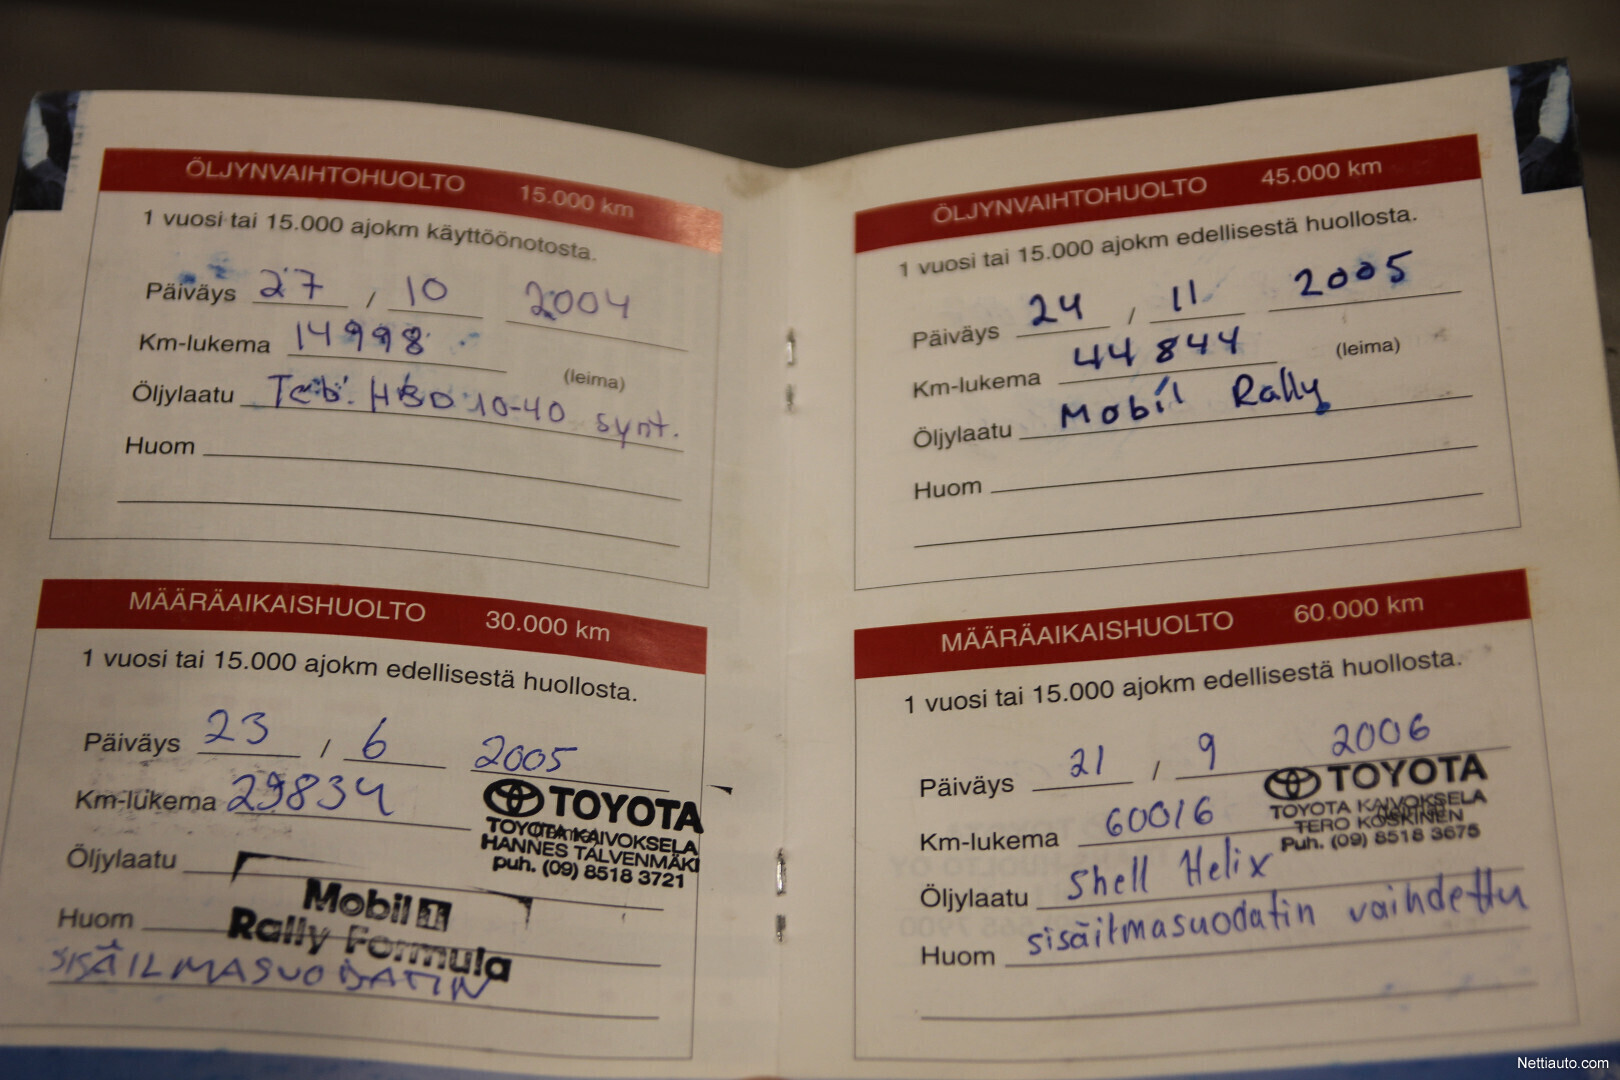 ÖLJYNVAIHTOHUOLTO 15.000 km
1 vuosi tai 15.000 ajokm käyttöönotosta.
Päiväys 27 / 10 2004
Km-lukema 14998
(leima)
Öljylaatu Teb. HBO 10-40 synt.
Huom
MÄÄRÄAIKAISHUOLTO 30.000 km
1 vuosi tai 15.000 ajokm edellisestä huollosta.
Päiväys 23 / 6 2005
Km-lukema 29834
TOYOTA
TOYOTA KAIVOKSELA
HANNES TALVENMÄKI
puh. (09) 8518 3721
Öljylaatu
Mobil 1
Rally Formula
Huom
SISÄILMASUODATIN
ÖLJYNVAIHTOHUOLTO 45.000 km
1 vuosi tai 15.000 ajokm edellisestä huollosta.
Päiväys 24 / 11 2005
Km-lukema 44844
(leima)
Öljylaatu Mobil Rally
Huom
MÄÄRÄAIKAISHUOLTO 60.000 km
1 vuosi tai 15.000 ajokm edellisestä huollosta.
Päiväys 21 / 9 2006
Km-lukema 60016
TOYOTA
TOYOTA KAIVOKSELA
TERO KOSKINEN
Puh. (09) 8518 3675
Öljylaatu Shell Helix
Huom sisäilmasuodatin vaihdettu
Nettiauto.com